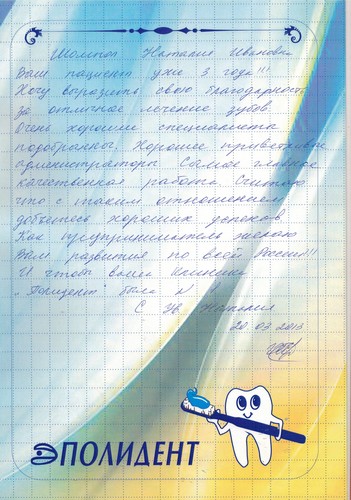 Шолтоя Наталия Ивановна
Ваш пациент уже 3 года!!!
Хочу выразить свою благодарность
за отличное лечение зубов.
Очень хорошие специалисты
подобраны. Хорошие приветливые
администраторы. Самое главное
качественная работа. Считаю
что с таким отношением
добьетесь хороших успехов.
Как предприниматель желаю
Вам развития по всей России!!!
И чтобы Ваша Клиника
„Полидент" была N 1
С Ув Наталия
20.03.2013
ПОЛИДЕНТ